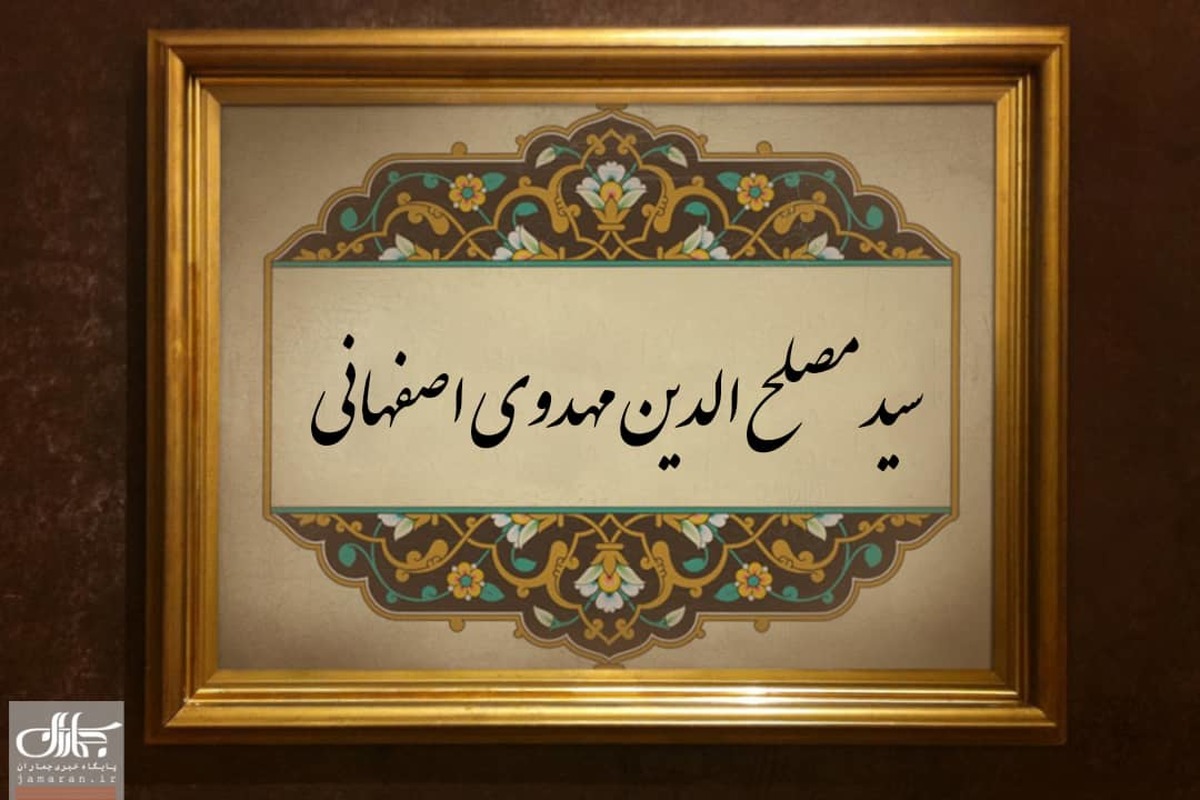 سید مصلح الدین مهدوی اصفهانی
جماران
پایگاه خبری جماران
jamaran.ir